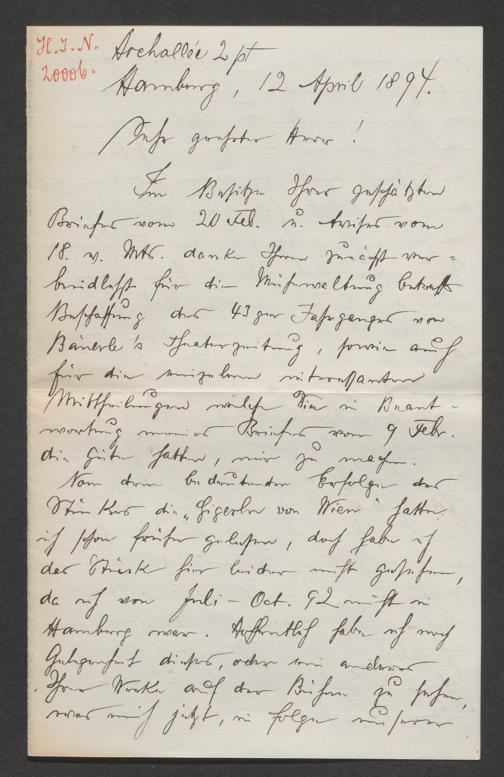 H. I. N.
20006.
Archallée 2 pt
Hamburg, 12 April 1894.
Sehr geehrter Herr!
Im Besitze Ihres geschätzten
Briefes vom 20 Feb. u. Avises vom
18. v. Mts. danke Ihnen zunächst ver-
bindlichst für die Mühewaltung betreffs
Beschaffung des 43ger Jahrganges von
Bäuerle's Theaterzeitung, sowie auch
für die einzelnen interessanten
Mittheilungen welche Sie in Beant-
wortung meines Briefes vom 9 Febr.
die Güte hatten, mir zu machen.
Von dem bedeutenden Erfolge des
Stückes die „Gigerln von Wien" hatte
ich schon früher gelesen, doch habe ich
das Stück hier leider nicht gesehen,
da ich von Juli – Oct. 92 nicht in
Hamburg war. Hoffentlich habe ich noch
Gelegenheit dieses, oder ein anderes
Ihrer Werke auf der Bühne zu sehen,
was mich jetzt, in Folge unserer